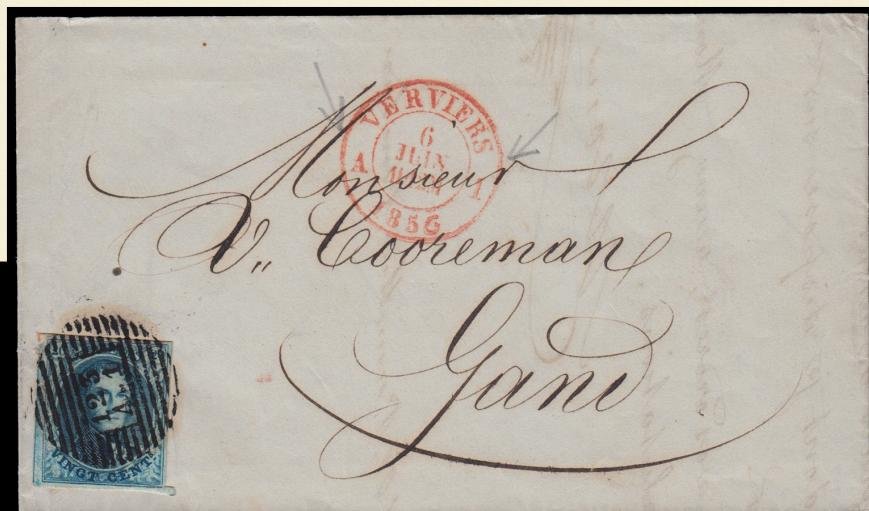 VERVIERS
6
JUIN
A 1
1856
Monsieur
V. Cooreman
Gand
123
A.1
VINGT CENT